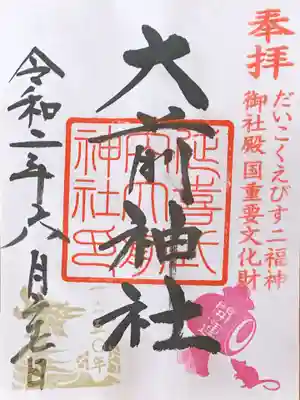 奉拝
だいこくえびす二福神
御社殿国重要文化財
大前神社
延喜式
内大前
神社印
開運
令和二年六月二七日
年